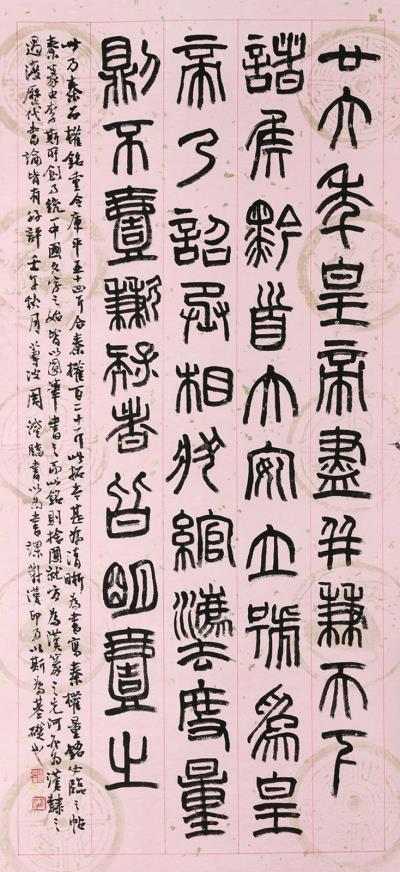 廿六年皇帝盡并兼天下
諸侯黔首大安立號為皇
帝乃詔丞相狀綰灋度量
則不壹歉疑者皆明壹之
此乃秦石權銘重今庫平五十四斤合秦權百二十斤此拓本甚為清晰為書寫秦權量銘必臨之帖
秦篆由李斯所創乃統中國文字之始皆以圓筆書之而此銘則捨圓就方為漢篆之先河亦為漢隸之
過渡歷代書論皆有好評 壬午秋月 周澄臨書以為書課對漢印乃以斯為基礎也